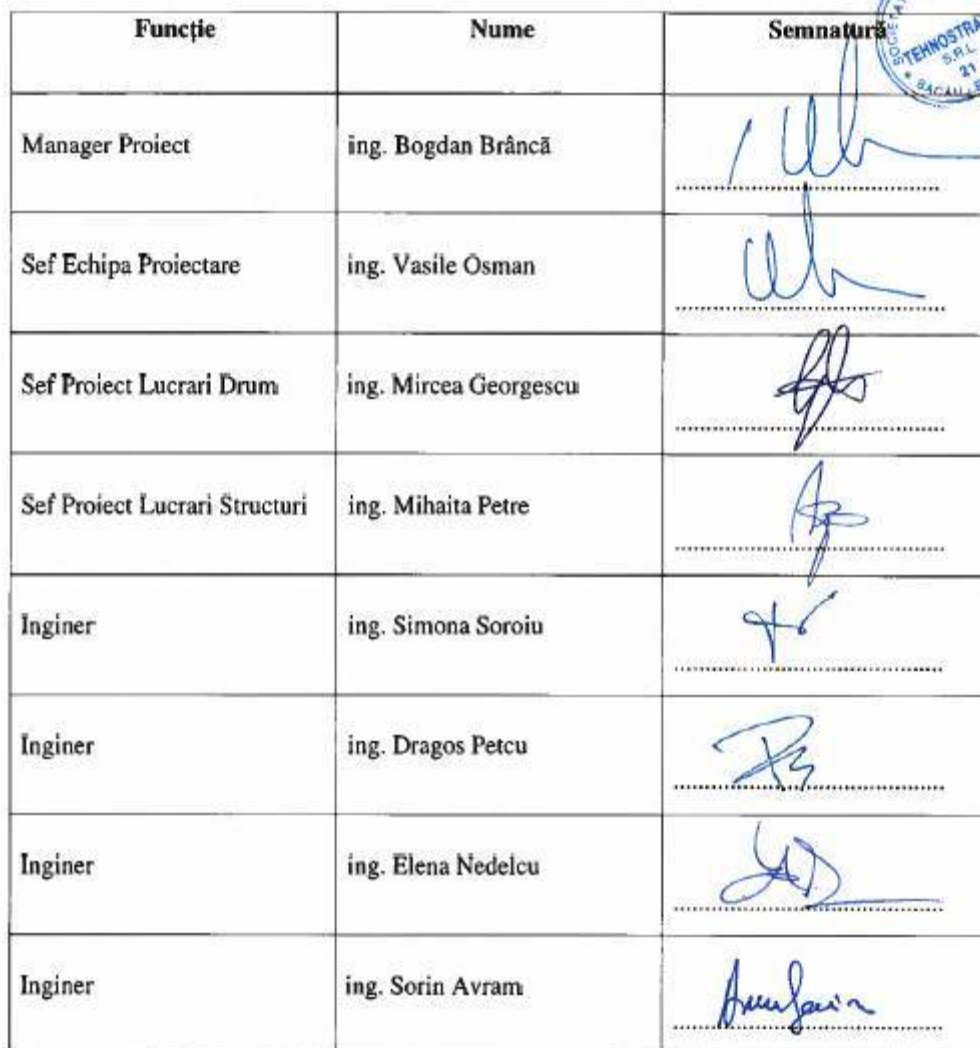 Funcție Nume Semnatură
SOCIETA
TEHNOSTRA
S.R.L.
21
BACĂU
Manager Proiect ing. Bogdan Brâncă
Sef Echipa Proiectare ing. Vasile Osman
Sef Proiect Lucrari Drum ing. Mircea Georgescu
Sef Proiect Lucrari Structuri ing. Mihaita Petre
Inginer ing. Simona Soroiu
Inginer ing. Dragos Petcu
Inginer ing. Elena Nedelcu
Inginer ing. Sorin Avram